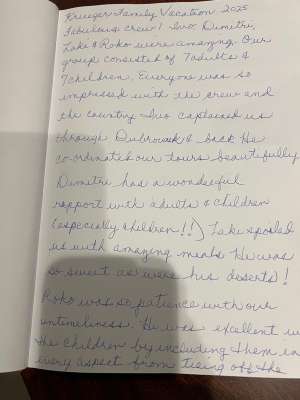 Krueger Family Vacation 2025
Fabulous crew! Ivo Dimitri,
Luke & Roko were amazing. Our
group consisted of 7 adults &
7 children. Everyone was so
impressed with the crew and
the country. Ivo captained us
through Dubrovnik & back. He
co-ordinated our tours beautifully
Dimitri has a wonderful
rapport with adults & children
(especially children!!) Luke spoiled
us with amazing meals. He was
so sweet as were his deserts)!
Roko was so patience with our
untimeliness. He was excellent w
the children by including them in
every aspect from tieing off the